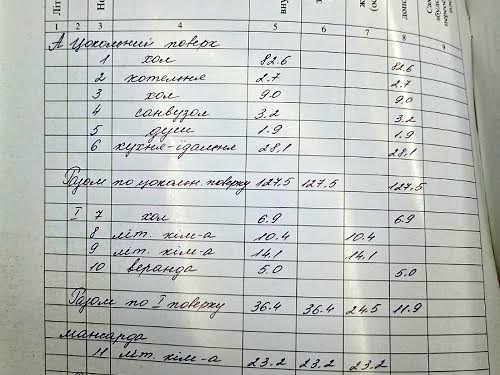 Літ
1 2 3 4 5 6 7 8 9
А Цокольний поверх
1 хол 82.6 82.6
2 котельня 2.7 2.7
3 хол 9.0 9.0
4 санвузол 3.2 3.2
5 душ 1.9 1.9
6 кухня-їдальня 28.1 28.1
Разом по цокольн. поверху 127.5 127.5 127.5
I 7 хол 6.9 6.9
8 літ. кім-а 10.4 10.4
9 літ. кім-а 14.1 14.1
10 веранда 5.0 5.0
Разом по I поверху 36.4 36.4 24.5 11.9
мансарда
11 літ. кім-а 23.2 23.2 23.2